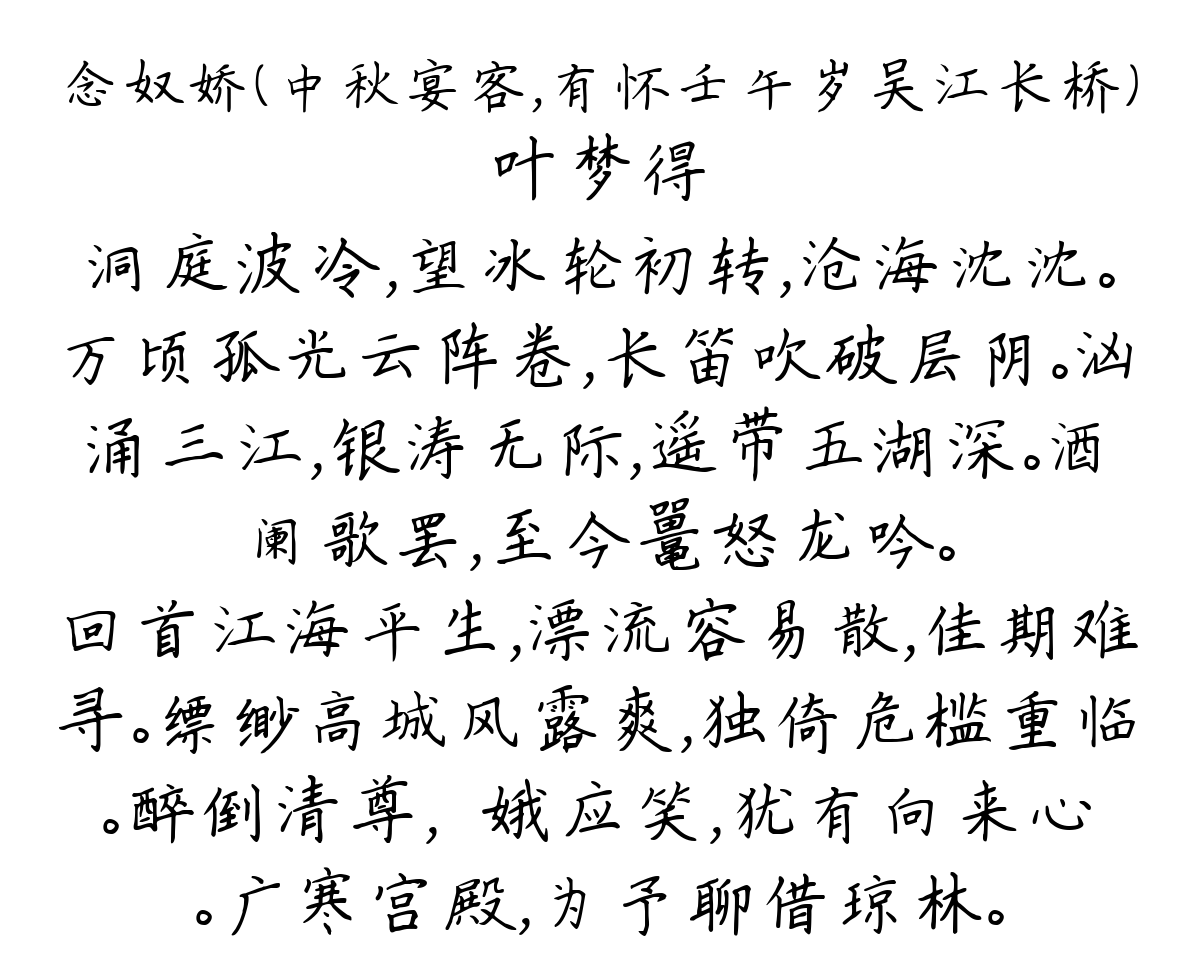 念奴娇(中秋宴客,有怀壬午岁吴江长桥)
叶梦得
洞庭波冷,望冰轮初转,沧海沈沈。
万顷孤光云阵卷,长笛吹破层阴。汹
涌三江,银涛无际,遥带五湖深。酒
阑歌罢,至今鼍怒龙吟。
回首江海平生,漂流容易散,佳期难
寻。缥缈高城风露爽,独倚危槛重临
。醉倒清尊,娥应笑,犹有向来心
。广寒宫殿,为予聊借琼林。